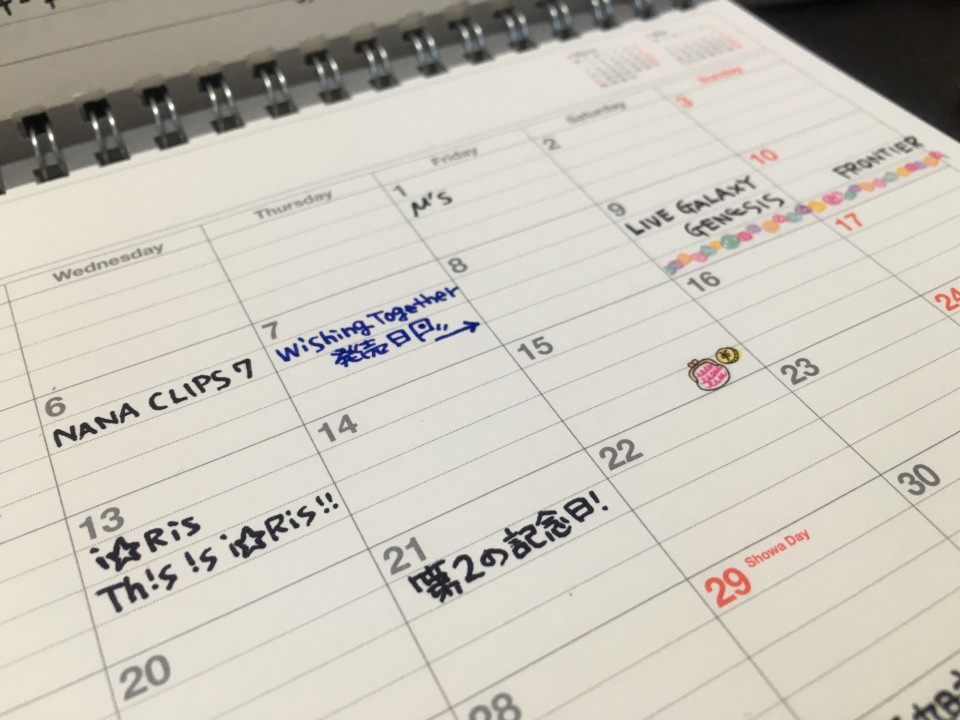 Wednesday
Thursday
Friday
Saturday
Sunday
1
2
3
μ's
6
7
8
9
10
NANA CLIPS 7
Wishing Together
発売日回
LIVE GALAXY
GENESIS
FRONTIER
13
14
15
16
17
i☆Ris
Th!s !s i☆Ris!!
20
21
22
23
24
第2の記念日!
28
29 Showa Day
30